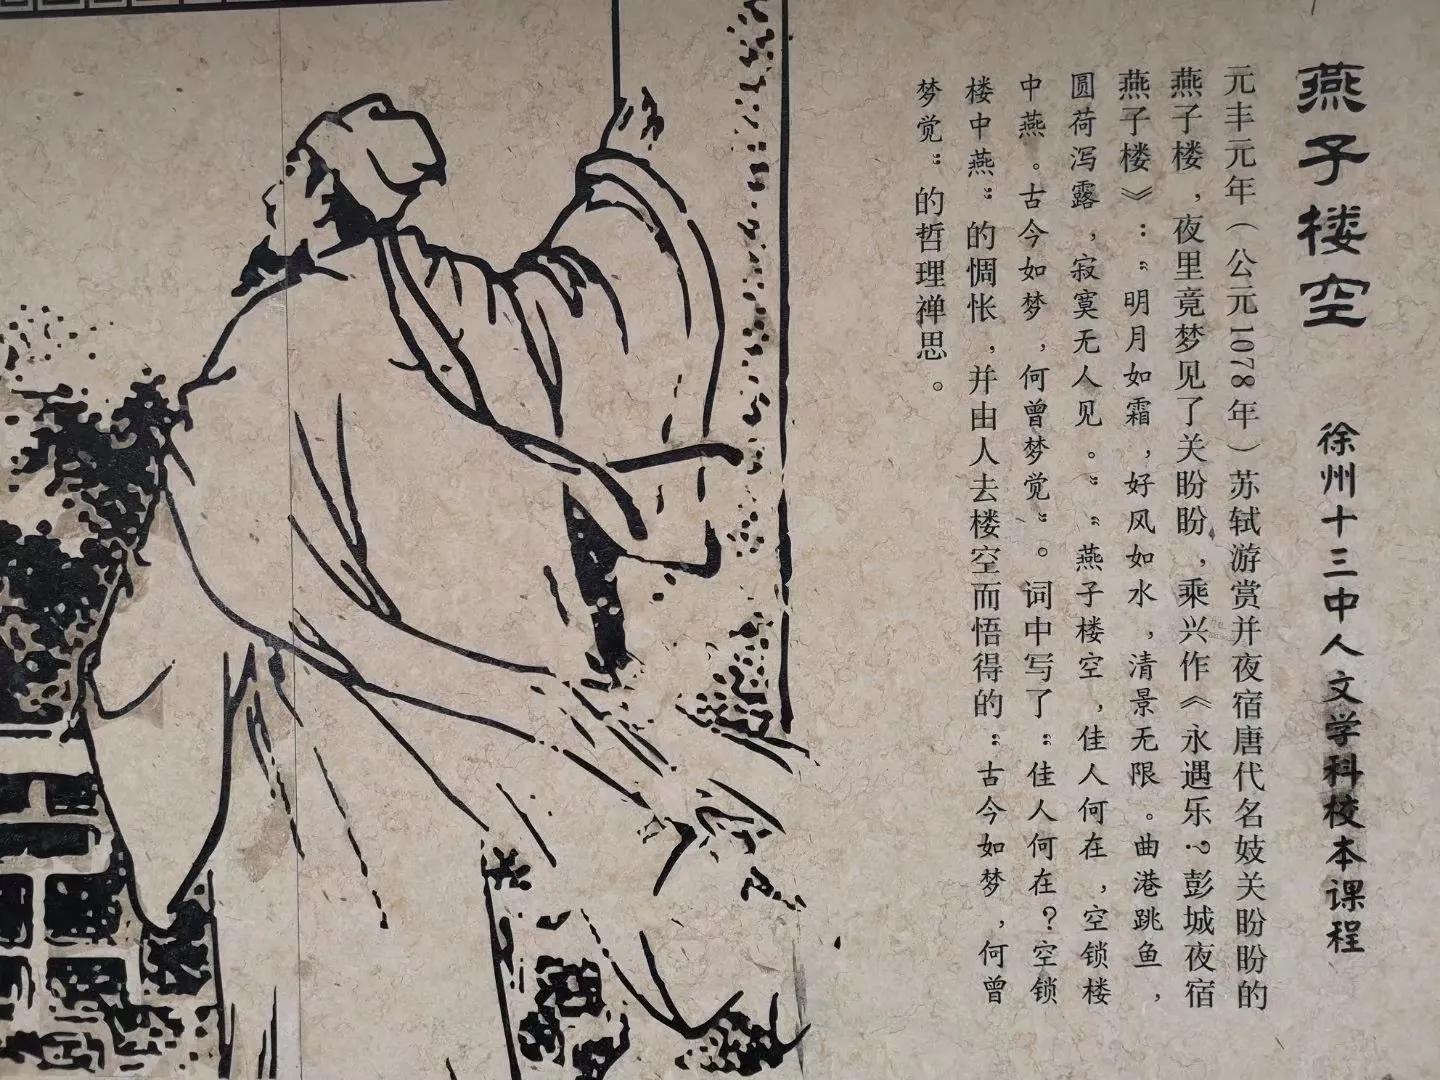 燕子楼空
徐州十三中人文学科校本课程
元丰元年(公元1078年)苏轼游赏并夜宿唐代名妓关盼盼的
燕子楼,夜里竟梦见了关盼盼,乘兴作《永遇乐?彭城夜宿
燕子楼》:“明月如霜,好风如水,清景无限。曲港跳鱼,
圆荷泻露,寂寞无人见。”“燕子楼空,佳人何在,空锁楼
中燕。古今如梦,何曾梦觉”。词中写了“佳人何在?空锁
楼中燕”的惆怅,并由人去楼空而悟得的“古今如梦,何曾
梦觉”的哲理禅思。